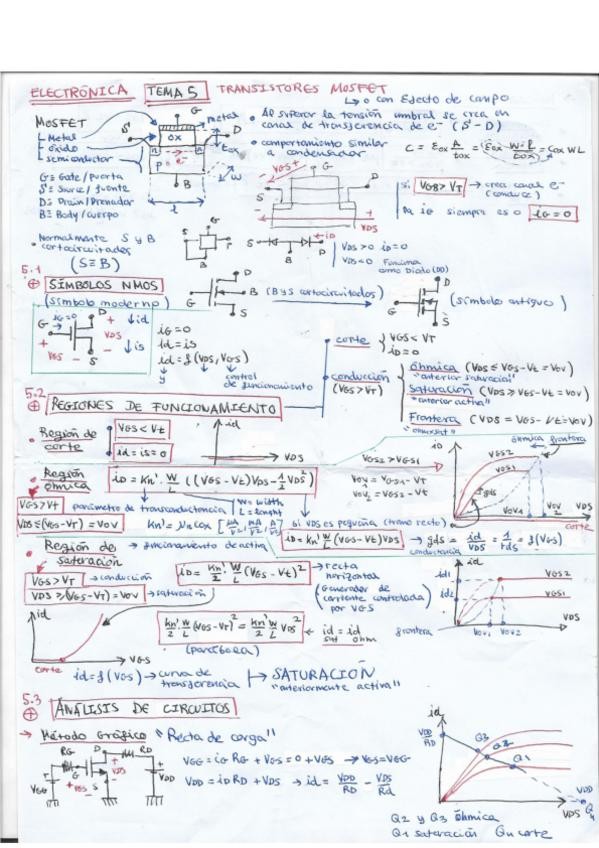 ELECTRÓNICA TEMA 5 TRANSISTORES MOSFET
↳ o con Efecto de campo
MOSFET
Metal
óxido
semiconductor
G ≡ Gate / Puerta
S ≡ Source / fuente
D ≡ Drain / Drenador
B ≡ Body / cuerpo
G
metal
S
OX
D
tox
n
e-
n
P
B
W
l
• Al superar la tensión umbral se crea en
canal de transferencia de e- (S - D)
• comportamiento similar
a condensador
C = Eox A/tox = Eox W·L/tox = Cox WL
VGS+
VDS
si VGB > VT → crea canal e-
(conduce)
iG siempre es 0 iG = 0
• Normalmente S y B
cortocircuitados
(S ≡ B)
G
S
D
B
iD
VDS > 0 iD = 0
VDS < 0 Funciona
como Diodo (DD)
5.1
SÍMBOLOS NMOS
(símbolo moderno)
G
D
B (B y S cortocircuitados)
S
G
D
S
(símbolo antiguo)
iG = 0
G
D
↓ id
+
VDS
-
↓ is
+ VGS -
S
iG = 0
id = is
id = f (VDS, VGS)
y
control
de funcionamiento
• corte
VGS < VT
iD = 0
• conducción
(VGS > VT)
óhmica (VDS ≤ VGS - Vt = VOV)
"anterior saturación"
Saturación (VDS ≥ VGS - Vt = VOV)
"anterior activa"
Frontera (VDS = VGS - Vt = VOV)
5.2
REGIONES DE FUNCIONAMIENTO
• Región de
corte
VGS < Vt
id = is = 0
id
VDS
• Región
óhmica
iD = Kn' W/L ((VGS - Vt) VDS - 1/2 VDS²)
VGS > VT
VDS ≤ (VGS - VT) = VOV
parámetro de transconductancia
W = width
L = lenght
Kn' = μn cox
VGS2 > VGS1
VOV1 = VGS1 - Vt
VOV2 = VGS2 - Vt
iD
óhmica frontera
VGS2
VGS1
gds
VOV1
VOV2
VDS
corte
si VDS es pequeña (tramo recto)
iD = Kn' W/L (VGS - Vt) VDS → gds = id/VDS = 1/rds = f(VGS)
conductancia
• Región de
saturación
→ funcionamiento de activa
VGS > VT → conducción
VDS ≥ (VGS - VT) = VOV → saturación
iD = Kn'/2 W/L (VGS - Vt)²
→ recta
horizontal
(Generador de
corriente controlada
por VGS
id
id1
id2
VGS2
VGS1
VDS
frontera
VOV1 VOV2
id
VGS
corte
Kn'/2 W/L (VGS - VT)² = Kn'/2 W/L VDS²
← id = id
sat ohm
(parábola)
id = f (VGS) → curva de
transferencia
→ SATURACIÓN
"anteriormente activa"
5.3
ANÁLISIS DE CIRCUITOS
→ Método Gráfico "Recta de carga"
RG
D
RD
G
+
VDS
-
+ VGS -
S
VGG
VDD
VGG = iG RG + VGS = 0 + VGS → VGS = VGG
VDD = iD RD + VDS → id = VDD/RD - VDS/Rd
id
VDD/RD
Q3
Q2
Q1
VDD
VDS
Q4
Q2 y Q3 óhmica
Q1 saturación Q4 corte